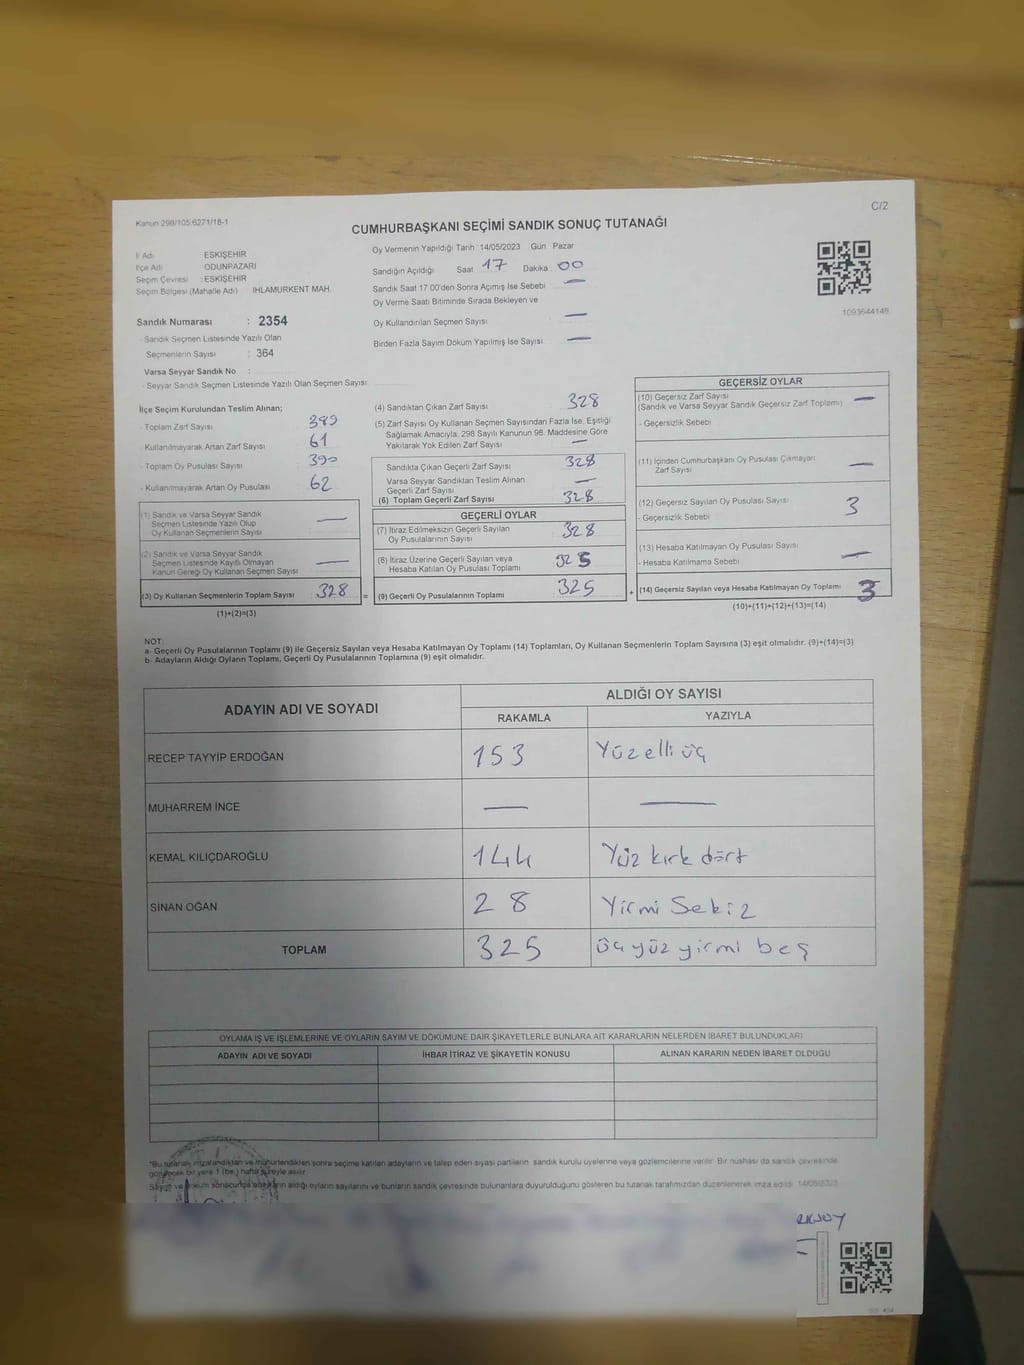 Kanun 298/105:6271/18-1
C/2
CUMHURBAŞKANI SEÇİMİ SANDIK SONUÇ TUTANAĞI
İl Adı ESKİŞEHİR
İlçe Adı ODUNPAZARI
Seçim Çevresi : ESKİŞEHİR
Seçim Bölgesi (Mahalle Adı) IHLAMURKENT MAH.
Sandık Numarası : 2354
- Sandık Seçmen Listesinde Yazılı Olan
Seçmenlerin Sayısı : 364
Varsa Seyyar Sandık No :
- Seyyar Sandık Seçmen Listesinde Yazılı Olan Seçmen Sayısı:
Oy Vermenin Yapıldığı Tarih 14/05/2023 Gün Pazar
Sandığın Açıldığı Saat 17 Dakika 00
Sandık Saat 17.00'den Sonra Açımış İse Sebebi —
Oy Verme Saati Bitiminde Sırada Bekleyen ve
Oy Kullandırılan Seçmen Sayısı —
Birden Fazla Sayım Döküm Yapılmış İse Sayısı —
1093644148
İlçe Seçim Kurulundan Teslim Alınan;
- Toplam Zarf Sayısı 389
- Kullanılmayarak Artan Zarf Sayısı 61
- Toplam Oy Pusulası Sayısı 390
- Kullanılmayarak Artan Oy Pusulası 62
(1) Sandık ve Varsa Seyyar Sandık
Seçmen Listesinde Yazılı Olup
Oy Kullanan Seçmenlerin Sayısı —
(2) Sandık ve Varsa Seyyar Sandık
Seçmen Listesinde Kayıtlı Olmayan
Kanun Gereği Oy Kullanan Seçmen Sayısı —
(3) Oy Kullanan Seçmenlerin Toplam Sayısı 328 =
(1)+(2)=(3)
(4) Sandıktan Çıkan Zarf Sayısı 328
(5) Zarf Sayısı Oy Kullanan Seçmen Sayısından Fazla İse, Eşitliği
Sağlamak Amacıyla, 298 Sayılı Kanunun 98. Maddesine Göre
Yakılarak Yok Edilen Zarf Sayısı —
Sandıkta Çıkan Geçerli Zarf Sayısı 328
Varsa Seyyar Sandıktan Teslim Alınan
Geçerli Zarf Sayısı —
(6) Toplam Geçerli Zarf Sayısı 328
GEÇERLİ OYLAR
(7) İtiraz Edilmeksizin Geçerli Sayılan
Oy Pusulalarının Sayısı 328
(8) İtiraz Üzerine Geçerli Sayılan veya
Hesaba Katılan Oy Pusulası Toplamı 325
(9) Geçerli Oy Pusulalarının Toplamı 325 +
GEÇERSİZ OYLAR
(10) Geçersiz Zarf Sayısı
(Sandık ve Varsa Seyyar Sandık Geçersiz Zarf Toplamı) —
- Geçersizlik Sebebi
(11) İçinden Cumhurbaşkanı Oy Pusulası Çıkmayan
Zarf Sayısı —
(12) Geçersiz Sayılan Oy Pusulası Sayısı 3
- Geçersizlik Sebebi
(13) Hesaba Katılmayan Oy Pusulası Sayısı —
- Hesaba Katılmama Sebebi
(14) Geçersiz Sayılan veya Hesaba Katılmayan Oy Toplamı 3
(10)+(11)+(12)+(13)=(14)
NOT:
a- Geçerli Oy Pusulalarının Toplamı (9) ile Geçersiz Sayılan veya Hesaba Katılmayan Oy Toplamı (14) Toplamları, Oy Kullanan Seçmenlerin Toplam Sayısına (3) eşit olmalıdır. (9)+(14)=(3)
b- Adayların Aldığı Oyların Toplamı, Geçerli Oy Pusulalarının Toplamına (9) eşit olmalıdır.
ADAYIN ADI VE SOYADI ALDIĞI OY SAYISI
RAKAMLA YAZIYLA
RECEP TAYYİP ERDOĞAN 153 Yüzelli üç
MUHARREM İNCE — —
KEMAL KILIÇDAROĞLU 144 Yüz kırk dört
SİNAN OĞAN 28 Yirmi Sekiz
TOPLAM 325 üçyüz yirmi beş
OYLAMA İŞ VE İŞLEMLERİNE VE OYLARIN SAYIM VE DÖKÜMÜNE DAİR ŞİKAYETLERLE BUNLARA AİT KARARLARIN NELERDEN İBARET BULUNDUKLARI
ADAYIN ADI VE SOYADI İHBAR İTİRAZ VE ŞİKAYETİN KONUSU ALINAN KARARIN NEDEN İBARET OLDUĞU
"Bu tutanak imzalandıktan ve mühürlendikten sonra seçime katılan adayların ve talep eden siyasi partilerin sandık kurulu üyelerine veya gözlemcilerine verilir. Bir nüshası da sandık çevresinde
görülecek bir yere 1 (bir) hafta süreyle asılır.
aldığı oyların sayılarını ve bunların sandık çevresinde bulunanlara duyurulduğunu gösteren bu tutanak tarafımızdan düzenlenerek imza edildi. 14/05/2023